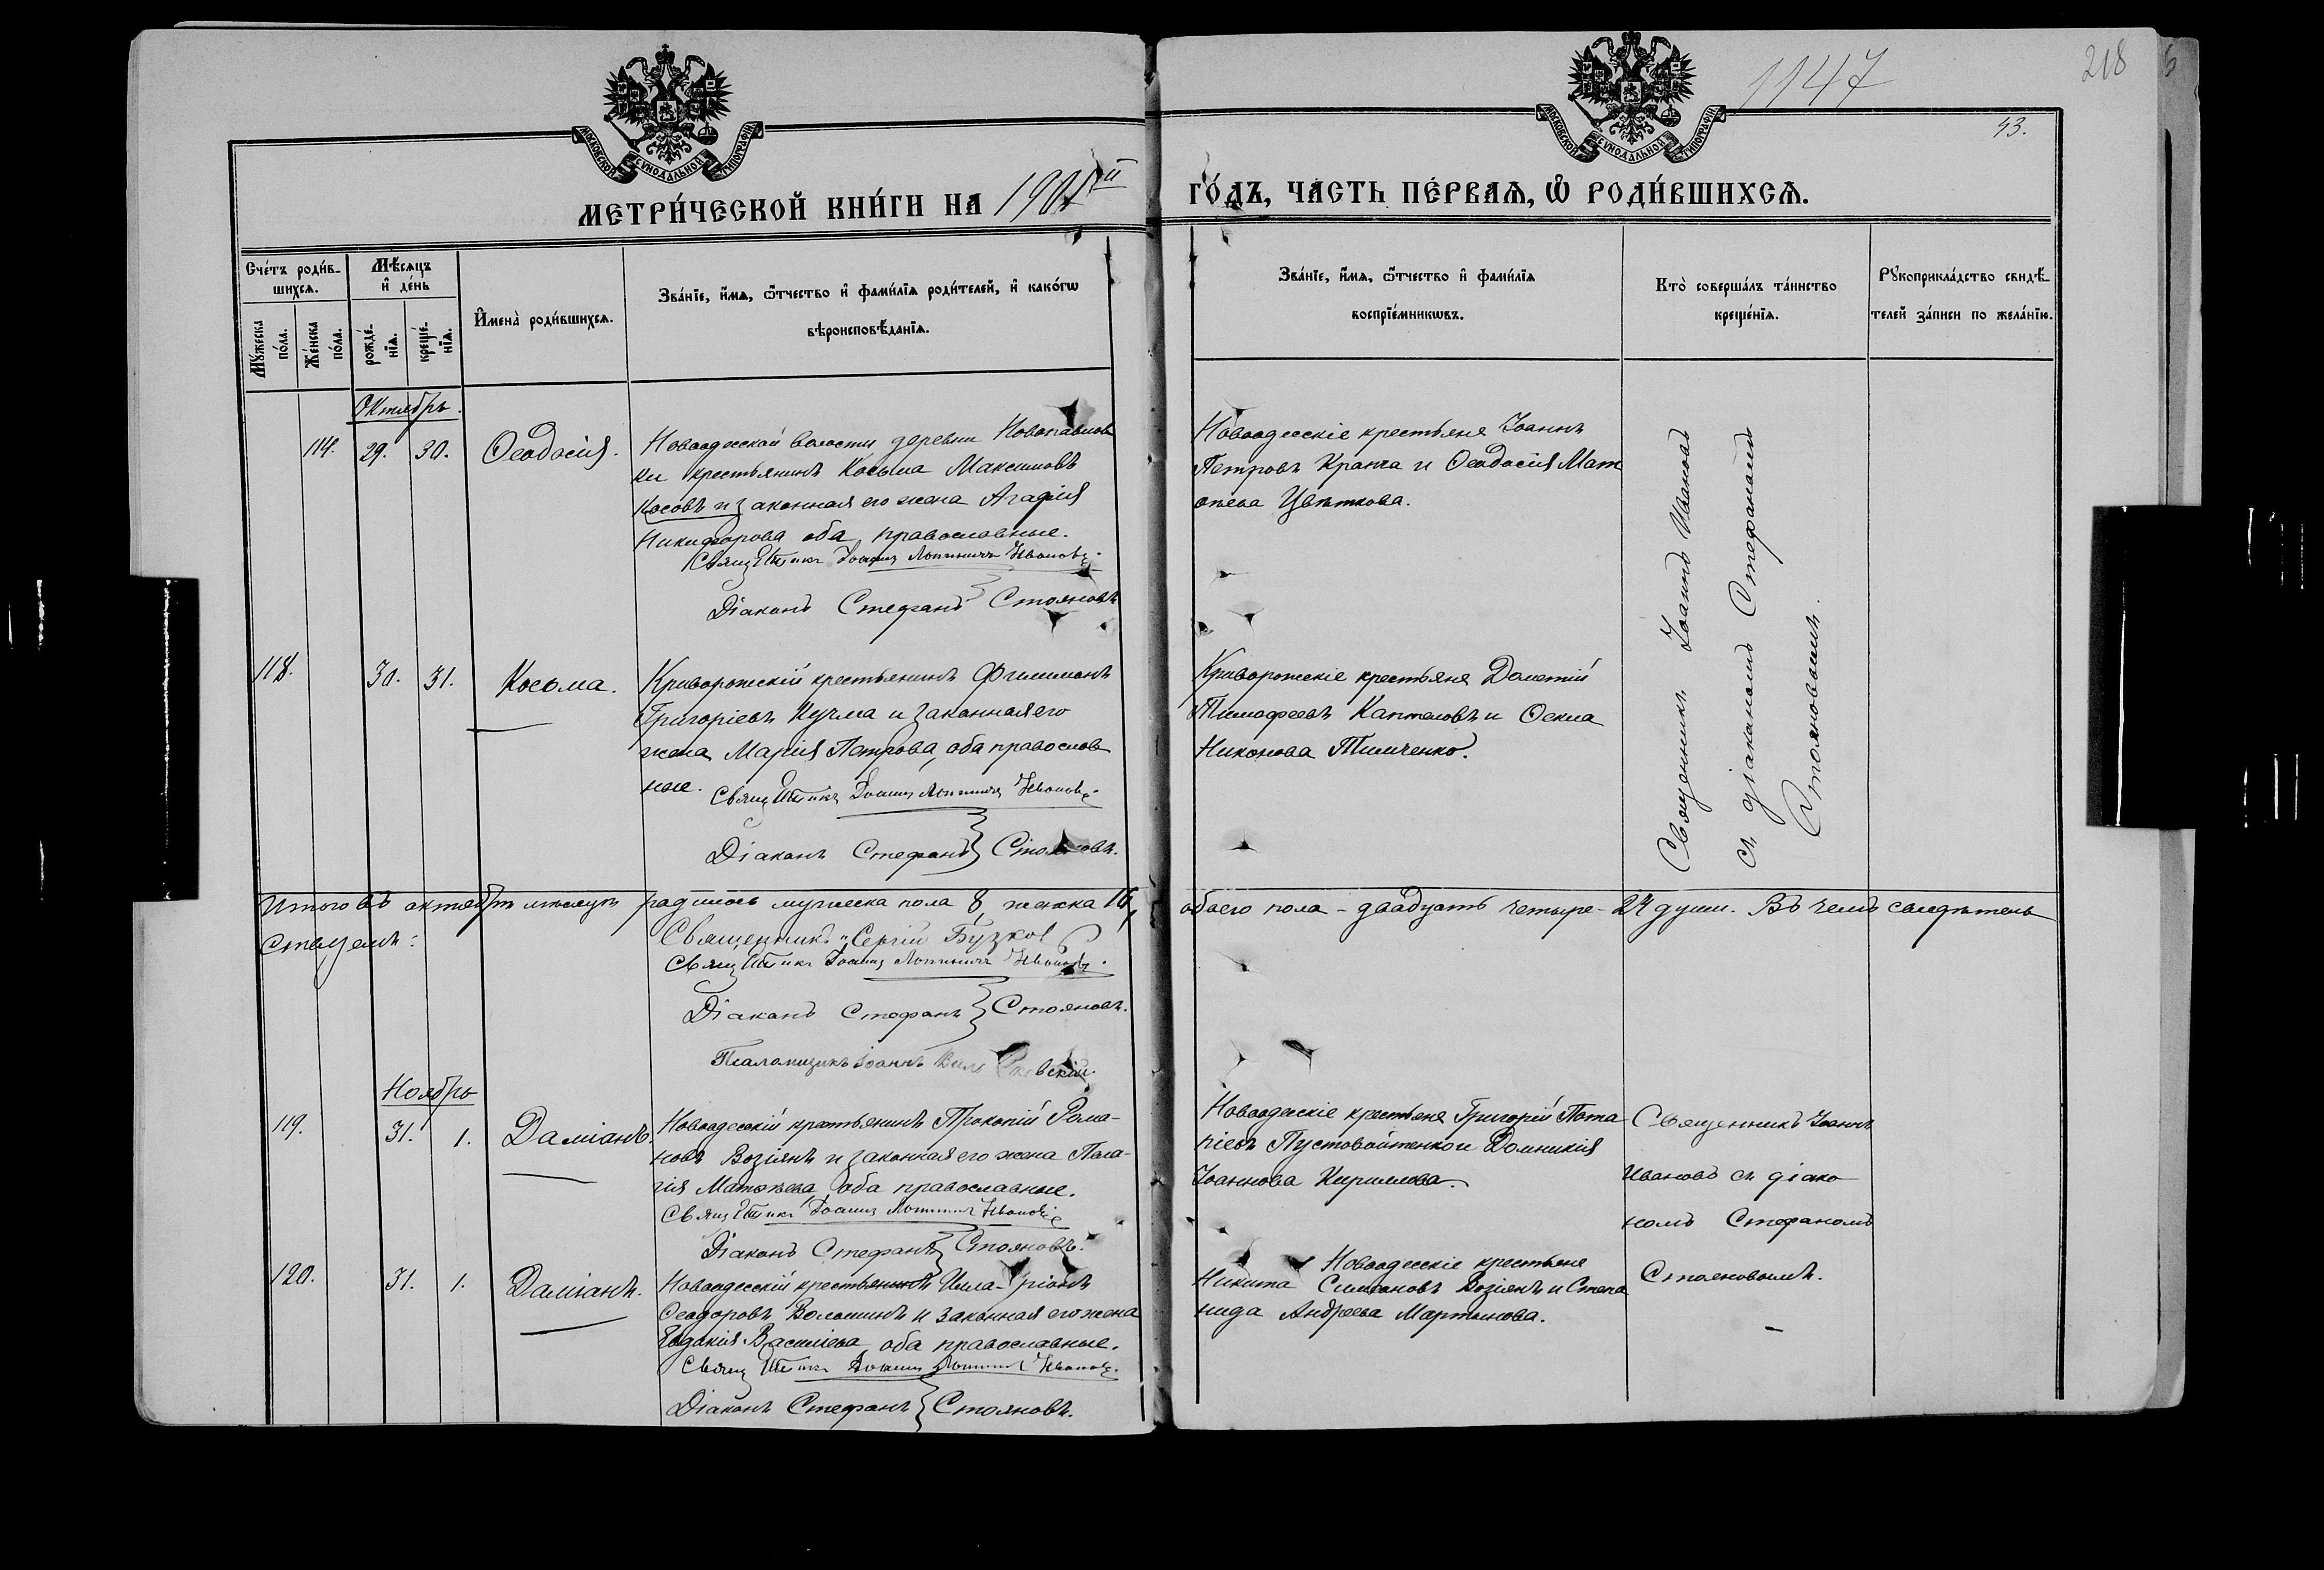 1147
218
43.
МОСКОВСКОЙ СУНОДАЛЬНОЙ ТИПОГРАФІИ
МОСКОВСКОЙ СУНОДАЛЬНОЙ ТИПОГРАФІИ
МЕТРИ́ЧЕСКОЙ КНИ́ГИ НА 1901й ГО́ДЪ, ЧА́СТЬ ПЕ́РВАѦ, Ѡ҆ РОДИ́ВШИХСѦ.
Сче́тъ роди́в-
шихсѧ.
Му́жеска по́ла.
Же́нска по́ла.
Мѣ́сѧцъ и҆ де́нь
рожде́-
нїѧ.
креще́-
нїѧ.
И҆мена̀ роди́вшихсѧ.
Зва́нїе, и҆́мѧ, ѻ҆́тчество и҆ фами́лїѧ роди́телей, и҆ како́гѡ
вѣроисповѣ́данїѧ.
Зва́нїе, и҆́мѧ, ѻ҆́тчество и҆ фами́лїѧ
воспрїе́мникѡвъ.
Кто̀ соверша́лъ та́инство
креще́нїѧ.
Рꙋкоприкла́дство свидѣ́-
телей за́писи по жела́нїю.
Октябрь.
114. 29. 30. Ѳеодосія.
Новоодесской волости деревни Новопавлов
ки крестьянинъ Косьма Максимовъ
Косовъ и законная его жена Агафія
Никифорова оба православные.
Іоаннъ Ивановъ.
Діаконъ Стефанъ Стояновъ
Новоодесскіе крестьяне Іоаннъ
Петровъ Кранга и Ѳеодосія Мат
ѳеева Цвѣткова.
Священникъ Іоаннъ Ивановъ
съ діакономъ Стефаномъ
Стояновымъ.
118. 30. 31. Косьма.
Криворожскій крестьянинъ Филимонъ
Григоріевъ Кучма и законная его
жена Марія Петрова, оба православ
ные.
Іоаннъ Ивановъ.
Діаконъ Стефанъ Стояновъ.
Криворожскіе крестьяне Дометій
Тимофеевъ Каптеловъ и Ѳекла
Никонова Тимченко.
Итого въ октябрѣ мѣсяцѣ родилось мужеска пола 8, женска 16, обоего пола - двадцать четыре - 24 души. Въ чемъ свидѣтель
ствуемъ:
Священникъ Сергій Бузков
Іоаннъ Ивановъ.
Діаконъ Стефанъ Стояновъ.
Псаломщикъ Іоаннъ
Ноябрь
119. 31. 1. Даміанъ.
Новоодесскій крестьянинъ Прокопій Рома-
новъ Возіянъ и законная его жена Пела-
гія Матѳеева, оба православные.
Іоаннъ Ивановъ
Діаконъ Стефанъ Стояновъ.
Новоодесскіе крестьяне Григорій Пота
піевъ Пустовойтенко и Домникія
Іоаннова Кириллова.
Священникъ Іоаннъ
Ивановъ съ діако
номъ Стефаномъ
Стояновымъ.
120. 31. 1. Даміанъ.
Новоодесскій крестьянинъ Илла-ріонъ
Ѳеодоровъ Волошинъ и законная его жена
Евдокія Васильева, оба православные.
Іоаннъ Ивановъ.
Діаконъ Стефанъ Стояновъ.
Новоодесскіе крестьяне
Никита Симеоновъ Возіянъ и Степа
нида Андреева Мартынова.